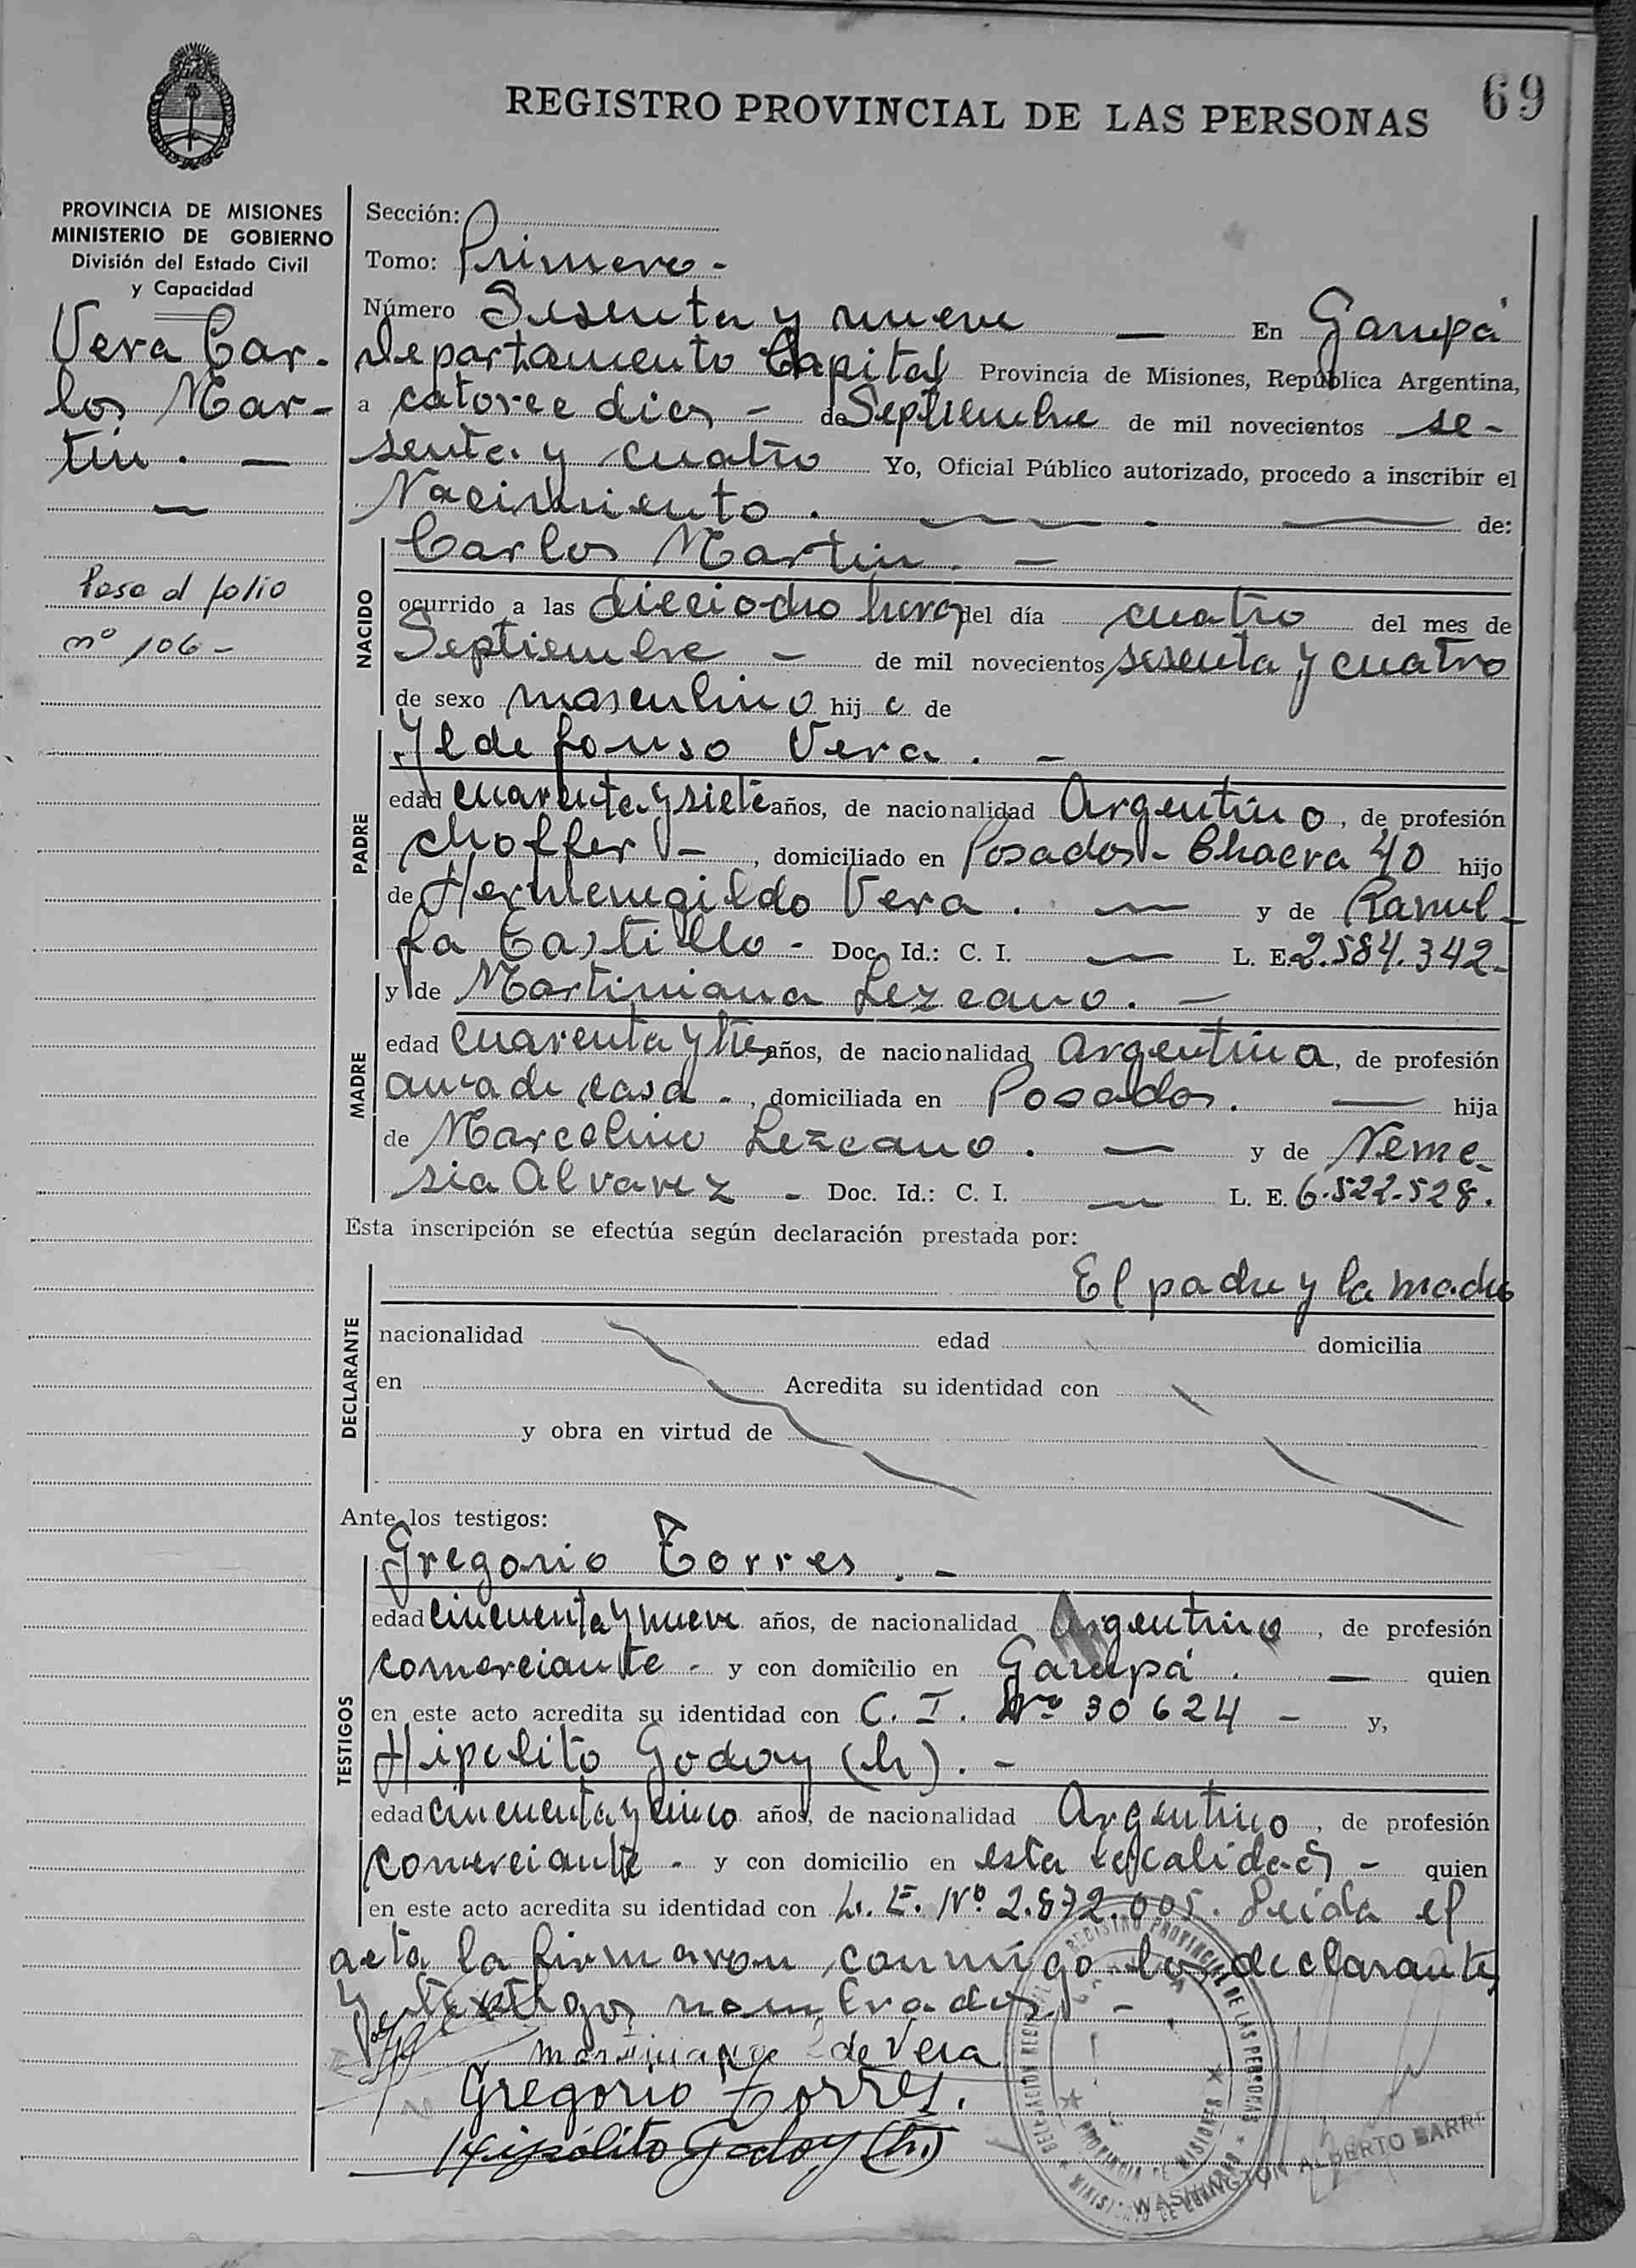 69
REGISTRO PROVINCIAL DE LAS PERSONAS
PROVINCIA DE MISIONES
MINISTERIO DE GOBIERNO
División del Estado Civil
y Capacidad
Vera Car-
los Mar-
tin. —
Pasa al folio
nº 106 -
Sección:
Tomo: Primero -
Número Sesenta y nueve — En Garupá
Departamento Capital Provincia de Misiones, República Argentina,
a catorce dias - de Septiembre de mil novecientos se-
senta y cuatro Yo, Oficial Público autorizado, procedo a inscribir el
Nacimiento . — de:
NACIDO
Carlos Martin . —
ocurrido a las dieciocho horas del día cuatro del mes de
Septiembre - de mil novecientos sesenta y cuatro
de sexo masculino hij o de
PADRE
Yldefonso Vera . -
edad cuarenta y siete años, de nacionalidad Argentino, de profesión
choffer -, domiciliado en Posadas - Chacra 40 hijo
de Hermenegildo Vera . — y de Ranul-
fa Castillo - Doc. Id.: C. I. — L. E. 2.584.342-
MADRE
y de Martiniana Lezcano . —
edad cuarenta y tres años, de nacionalidad argentina, de profesión
ama de casa -, domiciliada en Posadas . — hija
de Marcelino Lezcano . — y de Neme-
sia Alvarez - Doc. Id.: C. I. — L. E. 6.522.528.
Esta inscripción se efectúa según declaración prestada por:
DECLARANTE
El padre y la madre
nacionalidad edad domicilia
en Acredita su identidad con
y obra en virtud de
Ante los testigos:
TESTIGOS
Gregorio Torres . -
edad cincuenta y nueve años, de nacionalidad Argentino, de profesión
comerciante - y con domicilio en Garupá . — quien
en este acto acredita su identidad con C. I. Nº 30624 - y,
Hipolito Godoy (h) . -
edad cincuenta y cinco años, de nacionalidad Argentino, de profesión
comerciante - y con domicilio en esta localidad - quien
en este acto acredita su identidad con L. E. Nº 2.872.005. Leida el
acta la firmaron conmigo los declarantes
y testigos nombrados. -
Martiniana L de Vera
Gregorio Torres.
Hipólito Godoy (h.)
REGISTRO PROVINCIAL DE LAS PERSONAS
PROVINCIA DE MISIONES
WASHINGTON ALBERTO BARRE